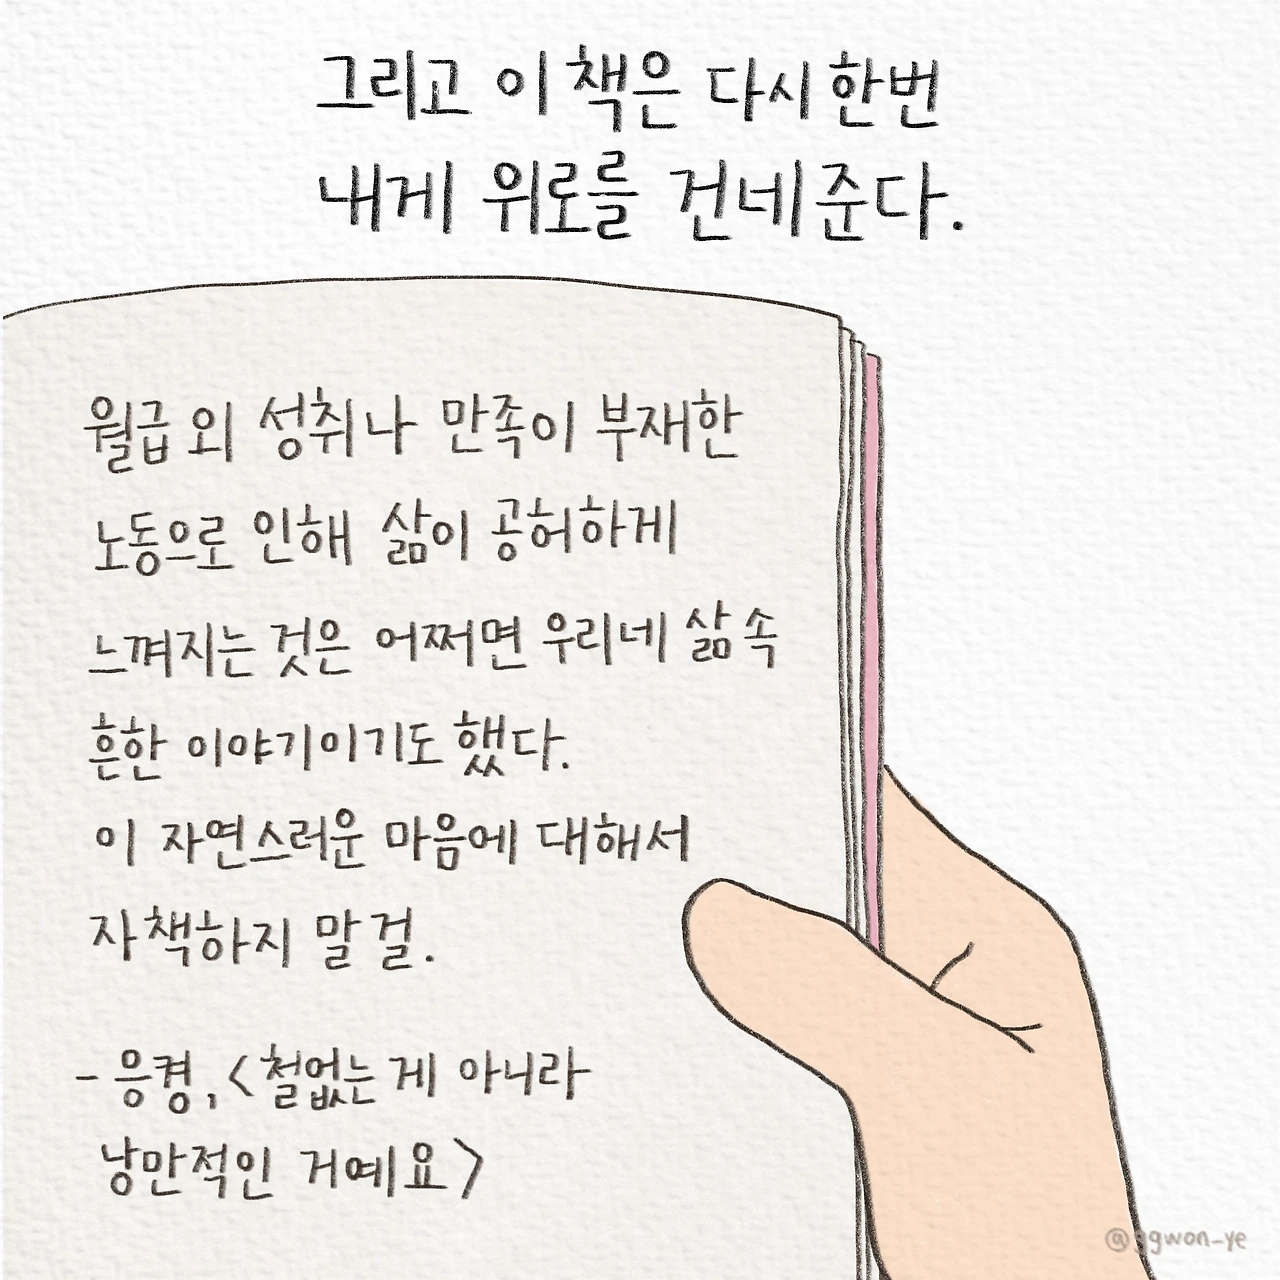 그리고 이 책은 다시 한번
내게 위로를 건네준다.
월급 외 성취나 만족이 부재한
노동으로 인해 삶이 공허하게
느껴지는 것은 어쩌면 우리네 삶 속
흔한 이야기이기도 했다.
이 자연스러운 마음에 대해서
자책하지 말 걸.
- 응켱, <철없는 게 아니라
낭만적인 거예요>